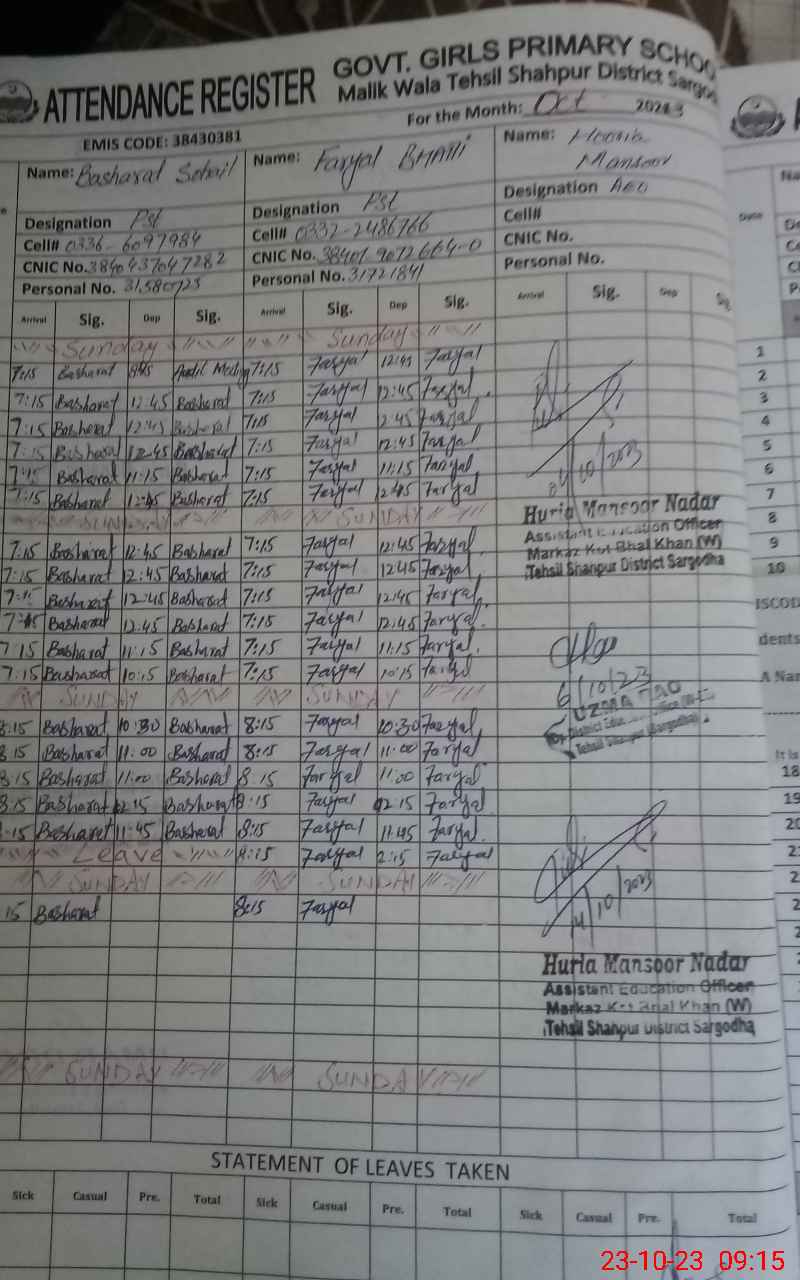 ATTENDANCE REGISTER
GOVT. GIRLS PRIMARY SCHOO
Malik Wala Tehsil Shahpur District Sargo
EMIS CODE: 38430381
For the Month: Oct 2023
Name: Basharat Sohail Name: Faryal BHATTI Name:
Mansoor
Designation Pst Designation Pst Designation AEO
Cell# 0336-6097984 Cell# 0332-2486766 Cell#
CNIC No. 3840437047282 CNIC No. 38401 9072664-0 CNIC No.
Personal No. Personal No. 31721841 Personal No.
Arrival Sig. Dep Sig. Arrival Sig. Dep Sig. Arrival Sig. Dep Sig.
Sunday Sunday
7:15 Basharat 7:15 Faryal 12:45 Faryal
7:15 Basharat 12:45 Basharat 7:15 Faryal 12:45 Faryal
7:15 Basharat 12:45 Basharat 7:15 Faryal 2:45 Faryal
7:15 Basharat 12:45 Basharat 7:15 Faryal 12:45 Faryal
Basharat 11:15 Basharat 7:15 Faryal 11:15 Faryal
7:15 Basharat 12:45 Basharat 7:15 Faryal 12:45 Faryal
SUNDAY SUNDAY
7:15 Basharat 12:45 Basharat 7:15 Faryal 12:45 Faryal
7:15 Basharat 12:45 Basharat 7:15 Faryal 12:45 Faryal
Basharat 12:45 Basharat 7:15 Faryal 12:45 Faryal
Basharat 12:45 Basharat 7:15 Faryal 12:45 Faryal
7:15 Basharat 11:15 Basharat 7:15 Faryal 11:15 Faryal
7:15 Basharat 10:15 Basharat 7:15 Faryal 10:15 Faryal
SUNDAY SUNDAY
8:15 Basharat 10:30 Basharat 8:15 Faryal 10:30 Faryal
8:15 Basharat 11:00 Basharat 8:15 Faryal 11:00 Faryal
8:15 Basharat 11:00 Basharat 8:15 Faryal 11:00 Faryal
8:15 Basharat 12:15 Basharat 8:15 Faryal 12:15 Faryal
:15 Basharat 11:45 Basharat 8:15 Faryal 11:45 Faryal
Leave 8:15 Faryal 2:15 Faryal
SUNDAY SUNDAY
15 Basharat 8:15 Faryal
SUNDAY SUNDAY
/10/2023
Huria Mansoor Nadar
Assistant Education Officer
Markaz Kot Bhai Khan (W)
Tehsil Shahpur District Sargodha
6/10/23
UZMA
Tehsil Shahpur (Sargodha)
/10/2023
Huria Mansoor Nadar
Assistant Education Officer
Markaz Kot Bhai Khan (W)
Tehsil Shahpur District Sargodha
STATEMENT OF LEAVES TAKEN
Sick Casual Pre. Total Sick Casual Pre. Total Sick Casual Pre. Total
Date
1
2
3
4
5
6
7
8
9
10
ISCOD
dents
A Nar
It is
18
19
23-10-23 09:15